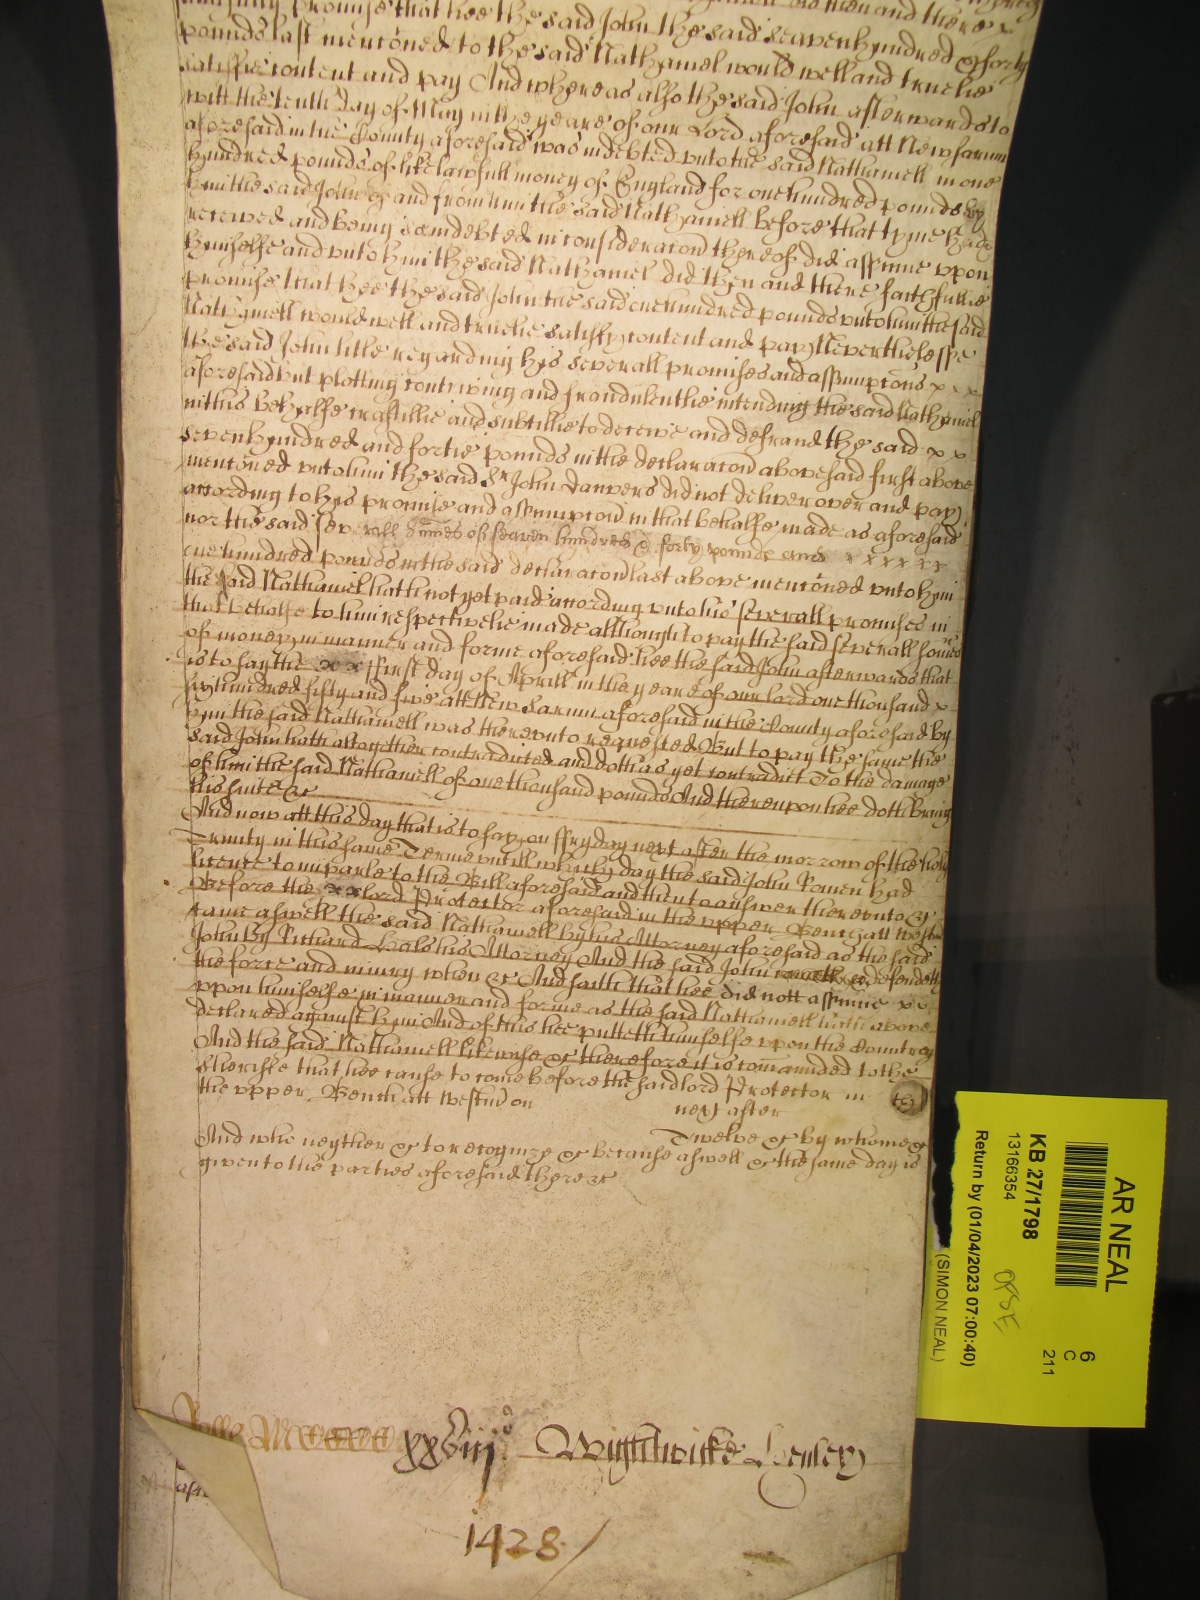 promise that hee the said John the said seavenhundred & forty
pounds last mencõned to the said Nathaniel would well and truelie
satisfie content and pay And whereas also the said John afterwards to
witt the tenth day of May in the yeare of our Lord aforesaid att New sarum
aforesaid in the County aforesaid was indebted unto the said Nathaniell in one
hundred pounds of like lawfull money of England for one hundred pounds by
him the said John and from him the said Nathaniell before that tyme had
receved and being soe indebted in consideracõn thereof did assume uppon
himselfe and unto him the said Nathaniel did then and there faithfullie
promise that hee the said John the said one hundred pounds unto him the said
Nathaniell would well and truelie satisfy content and pay Neverthelesse
the said John litle regarding his severall promises and assumpcõns x x x
aforesaid but plotting contriving and fraudulentlie intending the said Nathaniel
in this behalfe craftillie and subtillie to deceive and defraud the said x x
sevenhundred and fortie pounds in the declaracõn abovesaid first above
mencõned unto him the said Sr John Danvers did not deliver over and pay
according to his promise and assumpcõn in that behalfe made as aforesaid
nor the said severall sumes of seaven hundred & forty pounds and x x x x x x
one hundred pounds in the said declaracõn last above mencõned unto him
the said Nathaniel hath not yet paid according unto his severall promises in
that behalfe to him respectivelie made although to pay the said severall somes
of money in manner and forme aforesaid hee the said John afterwards that
is to say the x x ffirst day of Aprill in the yeare of our lord one thousand x
sixhundred fifty and five att New Sarum aforesaid in the County aforesaid by
him the said Nathaniell was thereunto requested But to pay the same the
said John hath altogether contradicted and doth as yet contradict To the damage
of him the said Nathaniell of one thousand pounds And thereupon hee doth bring
this suite &c
And now att this day that is to say on ffryday next after the morrow of the holy
Trinity in this same Terme untill which day the said John Bowen had
licence to imparle to the Bill aforesaid and then to answer thereunto &c
Before the x x lord Protector aforesaid in the upper Bench att Westm
came aswell the said Nathaniell by his Attorney aforesaid as the said
John by Richard Hals his Attorney And the said John defendeth
the force and iniury when &c And saith that hee did nott assume x x
uppon himselfe in manner and forme as the said Nathaniell hath above
declared against him And of this hee putteth himselfe upon the Countrey
And the said Nathaniell likewise &c therefore it is com̃anded to the
Sheriffe that hee cause to come before the said lord Protector in
the upper Bench att Westm̃ on next after
Twelve &c by whome &c
And who neyther &c to recognize &c because aswell &c the same day is
given to the parties aforesaid there &c
xxviijo Wightwicke Henley
1428
AR NEAL
KB 27/1798
13166354
Return by (01/04/2023 07:00:40)
(SIMON NEAL)
6
C
211